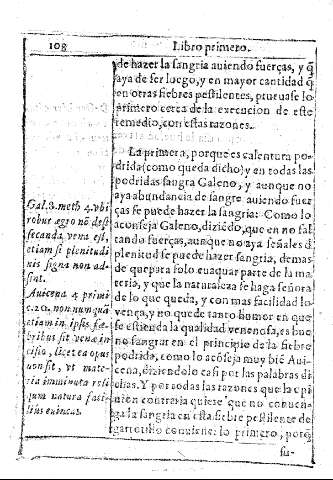 108 Libro primero.
de hazer la sangria auiendo fuerças, y q̃
aya de ser luego, y en mayor cantidad q̃
en otras fiebres pestilentes, prueuase lo
primero cerca de la execucion de este
remedio, con estas razones.
La primera, porque es calentura po-
drida (como queda dicho) y en todas las
podridas sangra Galeno, y aunque no
aya abundancia de sangre auiendo fuer
ças se puede hazer la sangria: Como lo
aconseja Galeno, diziẽdo, que en no fal
tando fuerças, aunque no aya señales d̃
plenitud se puede hazer sangria, demas
de que para solo euaquar parte de la ma
teria, y que la naturaleza se haga señora
de lo que queda, y con mas facilidad lo
vença, y no quede tanto humor en que
se estienda la qualidad venenosa, es bue
no sangrar en el principio de la fiebre
podrida, como lo acõseja muy biẽ Aui-
cena, diziendolo casi por las palabras di
chas. Y por todas las razones que la opi
nion contraria quiere que no conuen-
ga la sangria en esta fiebre pestilente de
garrotillo conuiene: lo primero, porq̃
sa-
Gal. 3. meth 4. vbi
robur ægro nõ dest
secanda vena est,
etiam si plenitudi
nis signa non ad-
sint.
Auicena 4 primi
c. 20. non nunquã
etiam in ipsis fæ-
bribus sit venæ in
cisio, licet ea opus
non sit, vt mate-
ria imminuta reli
qum natura faci-
lius euincat.